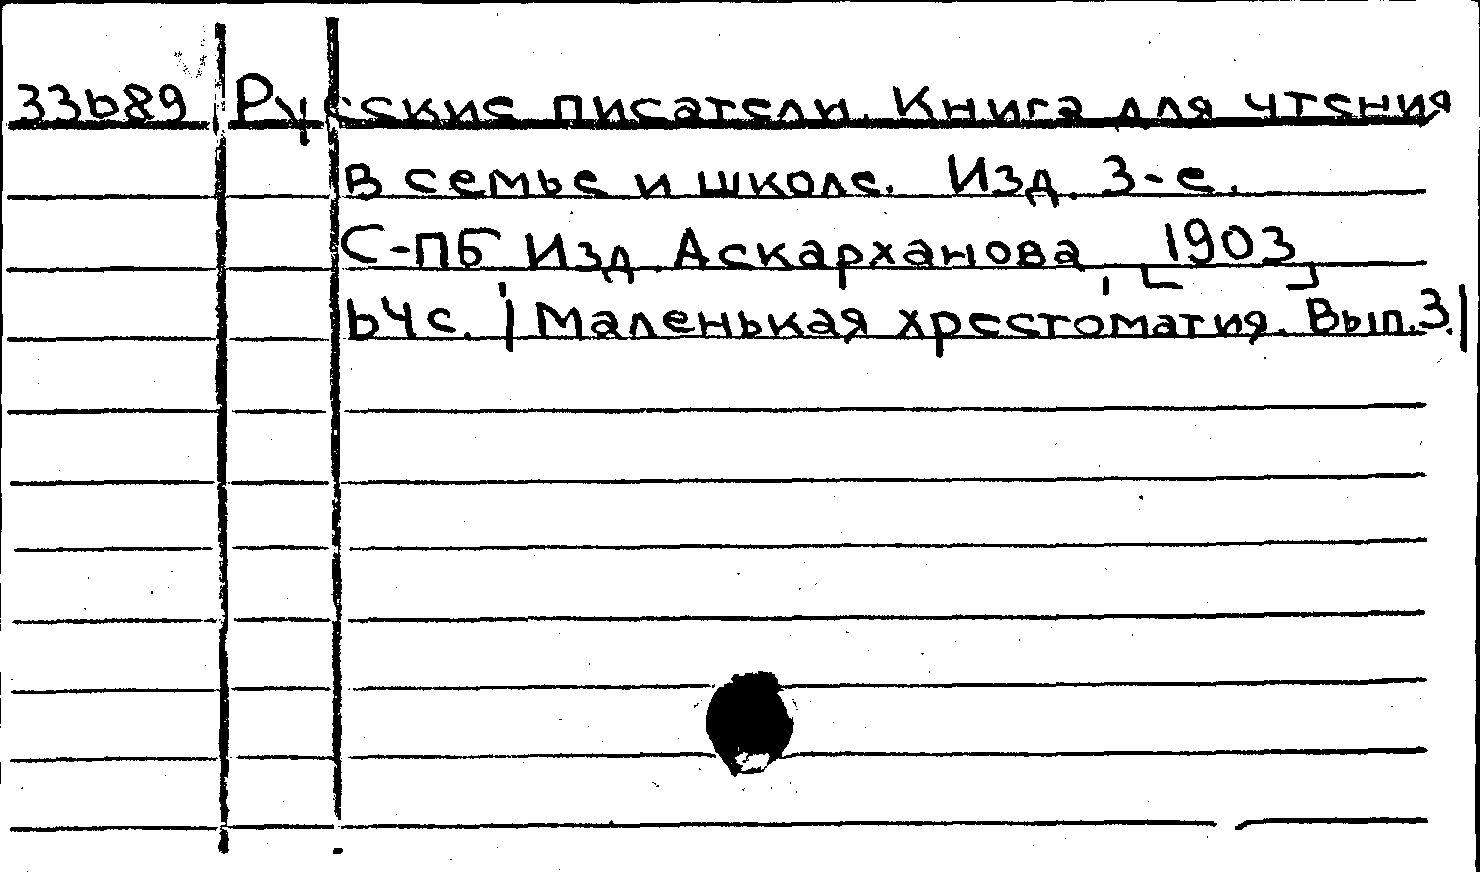 33689 Русские писатели. Книга для чтения
в семье и школе. Изд. 3-е.
С-ПБ Изд. Аскарханова, [1903]
64с. |Маленькая хрестоматия. Вып.3.|